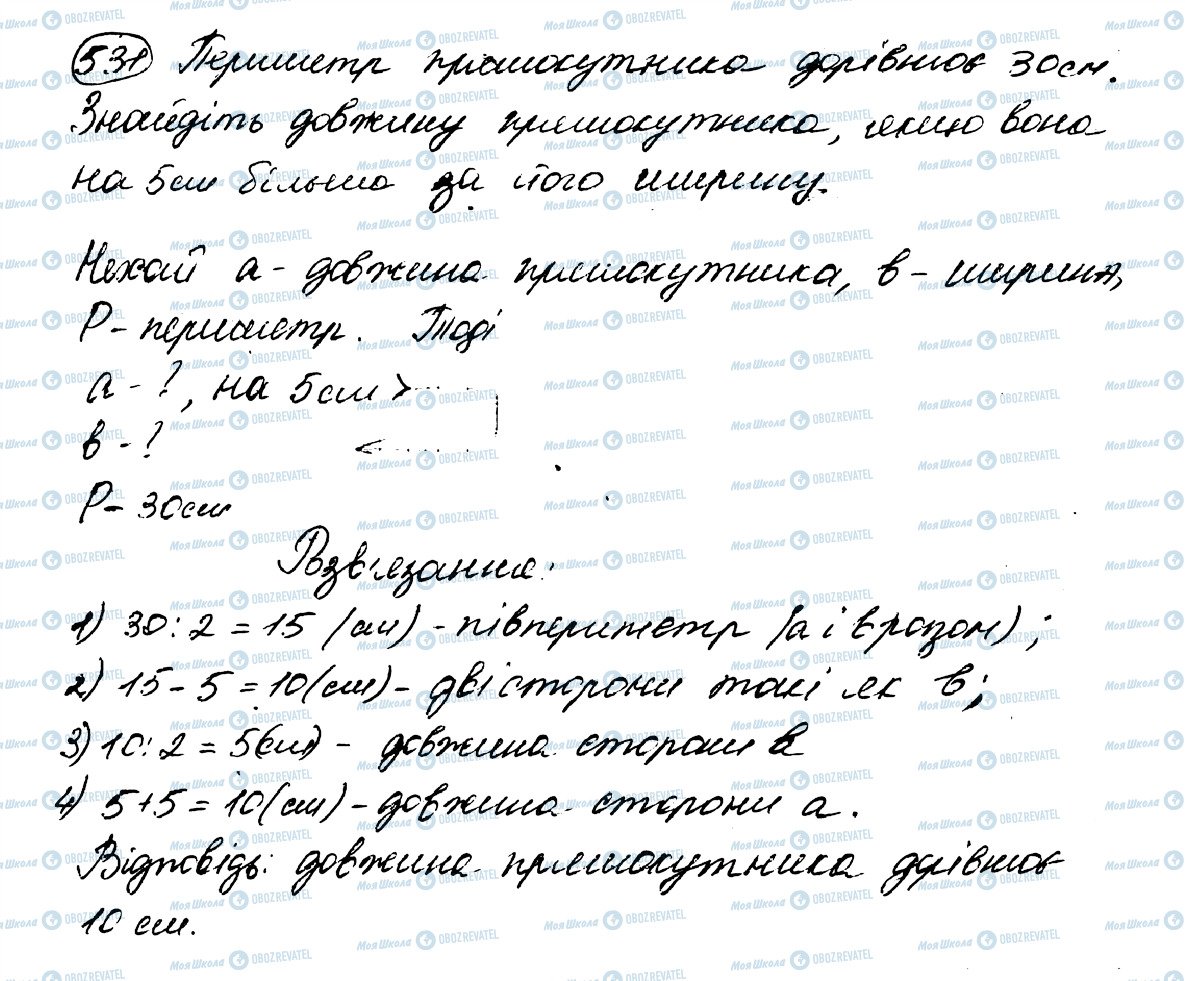 531 Периметр прямокутника дорівнює 30см.
Знайдіть довжину прямокутника, якщо вона
на 5см більша за його ширину.
Нехай а - довжина прямокутника, в - ширина,
Р - периметр. Тоді
а - ?, на 5см >
в - ?
Р - 30см
Розв'язання:
1) 30 : 2 = 15 (см) - півпериметр (а і в разом);
2) 15 - 5 = 10 (см) - дві сторони такі як в;
3) 10 : 2 = 5(см) - довжина сторони в
4) 5 + 5 = 10 (см) - довжина сторони а.
Відповідь: довжина прямокутника дорівнює
10 см.
Моя Школа OBOZREVATEL